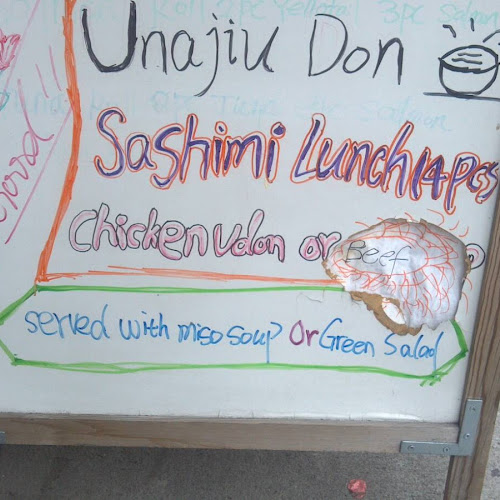 Unajiu Don
Sashimi Lunch 14pcs
Chicken Udon or
Beef
served with miso soup Or Green Salad